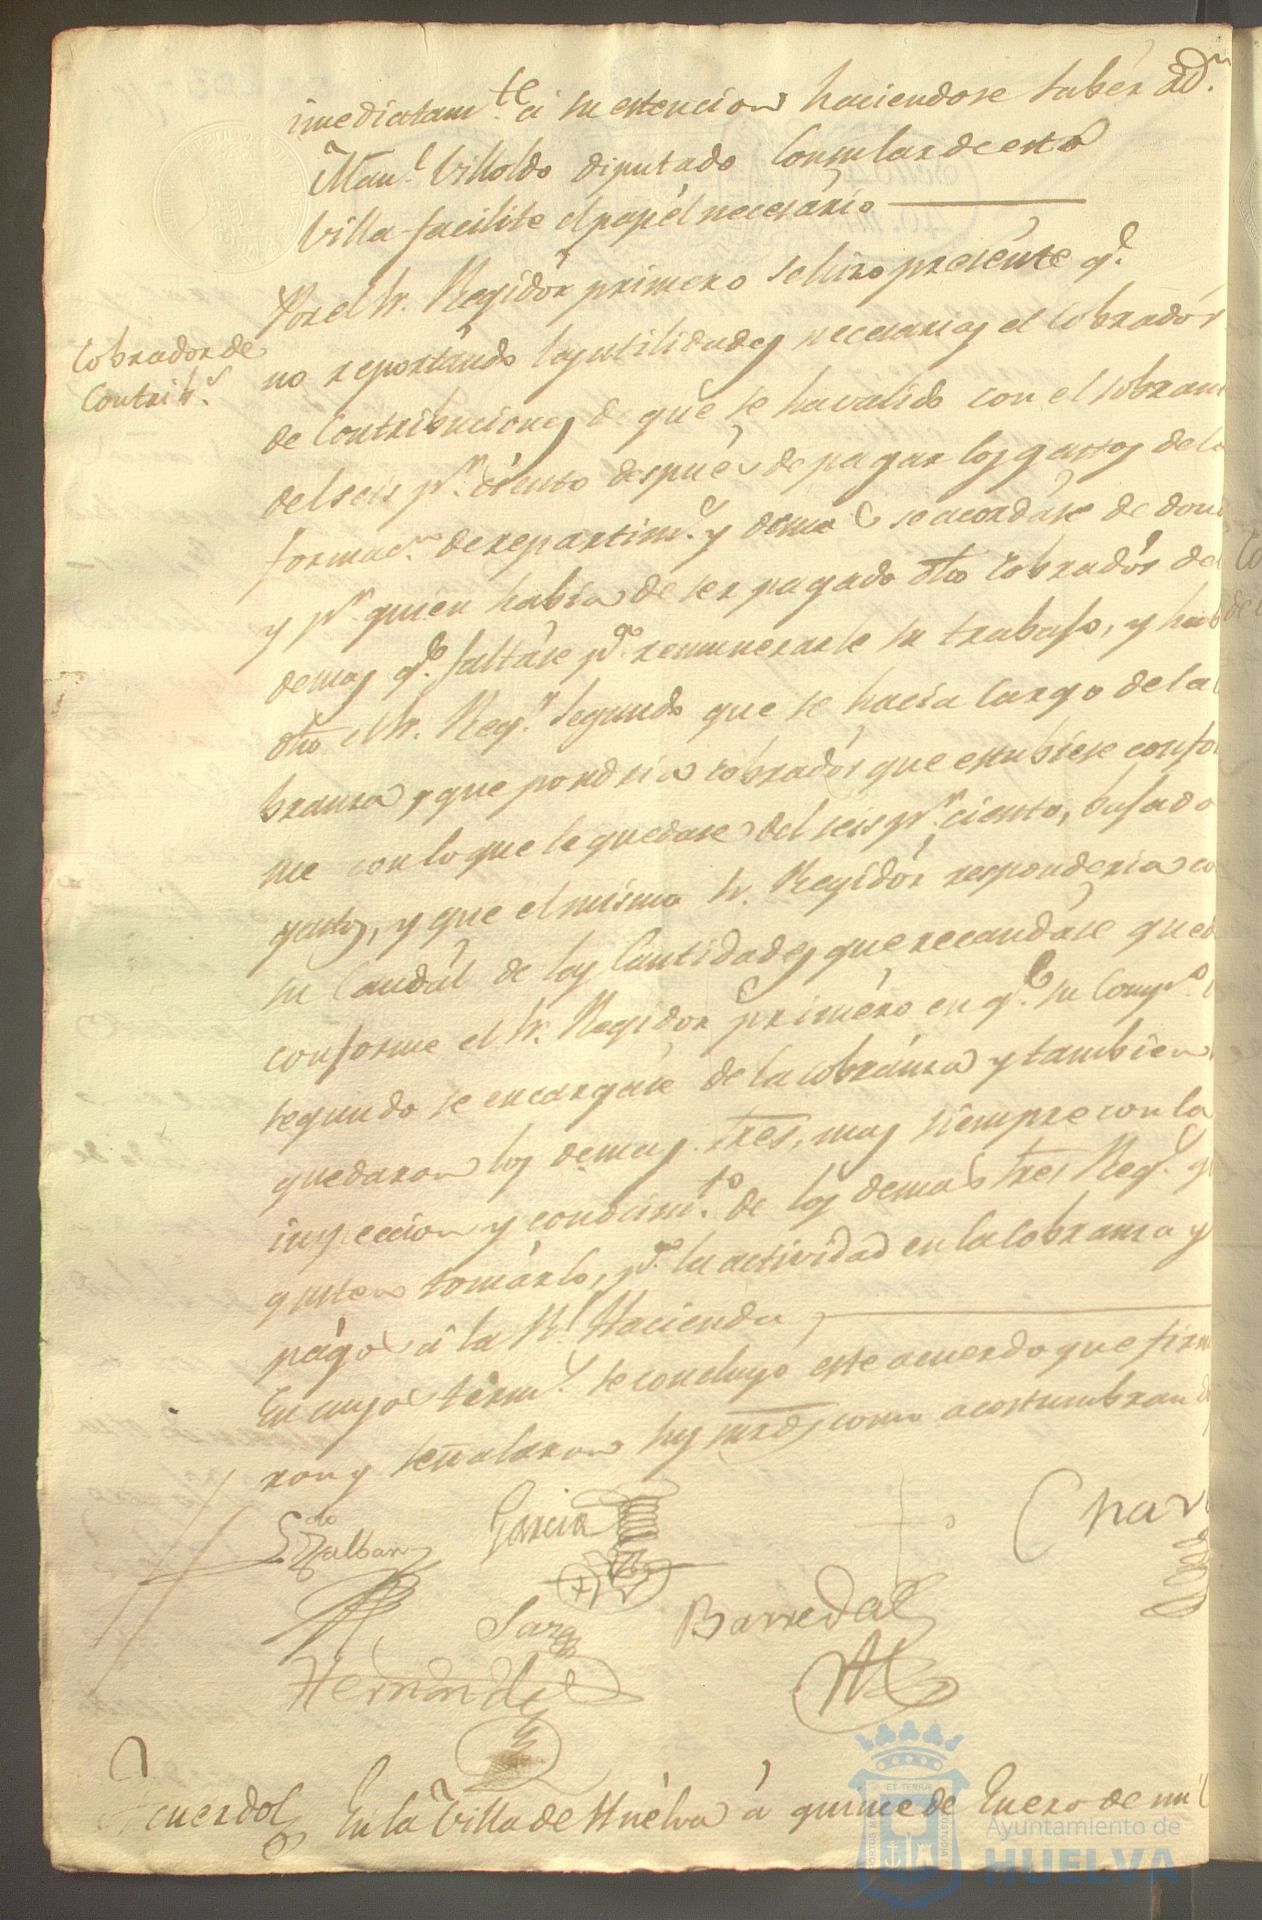 imediatam.te á su estencion haciendose saber á D.n
Man.l Villoldo diputado Consular de esta
Villa facilite el papél necesário
Por el Sr. Regidór primero se hizo presénte q.e
Cobrador de
Contrib.s
no reportándo las utilidades necesarias el Cobradór
de Contribuciones de que se ha valido con el sobran
del seis p.r ciento despues de pagar los gastos de la
formac.n de repartim.s y demas se acordáse de dond
y p.r quien habia de ser pagado dho Cobradór del
demas q.e faltáse p.a remunerarle su trabajo, y hab
dho el Sr. Reg.r Segundo que se hacía Cargo de la
branza y que pondria cobradór que estubiese confor
me con lo que le quedase del seis p.r ciento, bajado
gastos, y que el mismo Sr. Regidór responderia co
su Caudál de las Cantidades que recaudáse qued
conforme el Sr. Regidor priméro en q.e su Comp.o
segundo se encargáse de la cobránza y tambien
quedaron los demas tres, mas siempre con la
inspeccion y conocim.to de los demas tres Reg.s q
gusten tomárlo, p.a la actividad en la Cobranza y
págo á la R.l Hacienda
En cuyos térm.s se concluyó este acuerdo que firm
ron y señalaron sus mrds como acostumbran d
Garcia
Char
Barreda
Hernandez
Acuerdo En la Villa de Huélva á quince de Enero de mil
ET TERRÆ
Ayuntamiento de
HUELVA